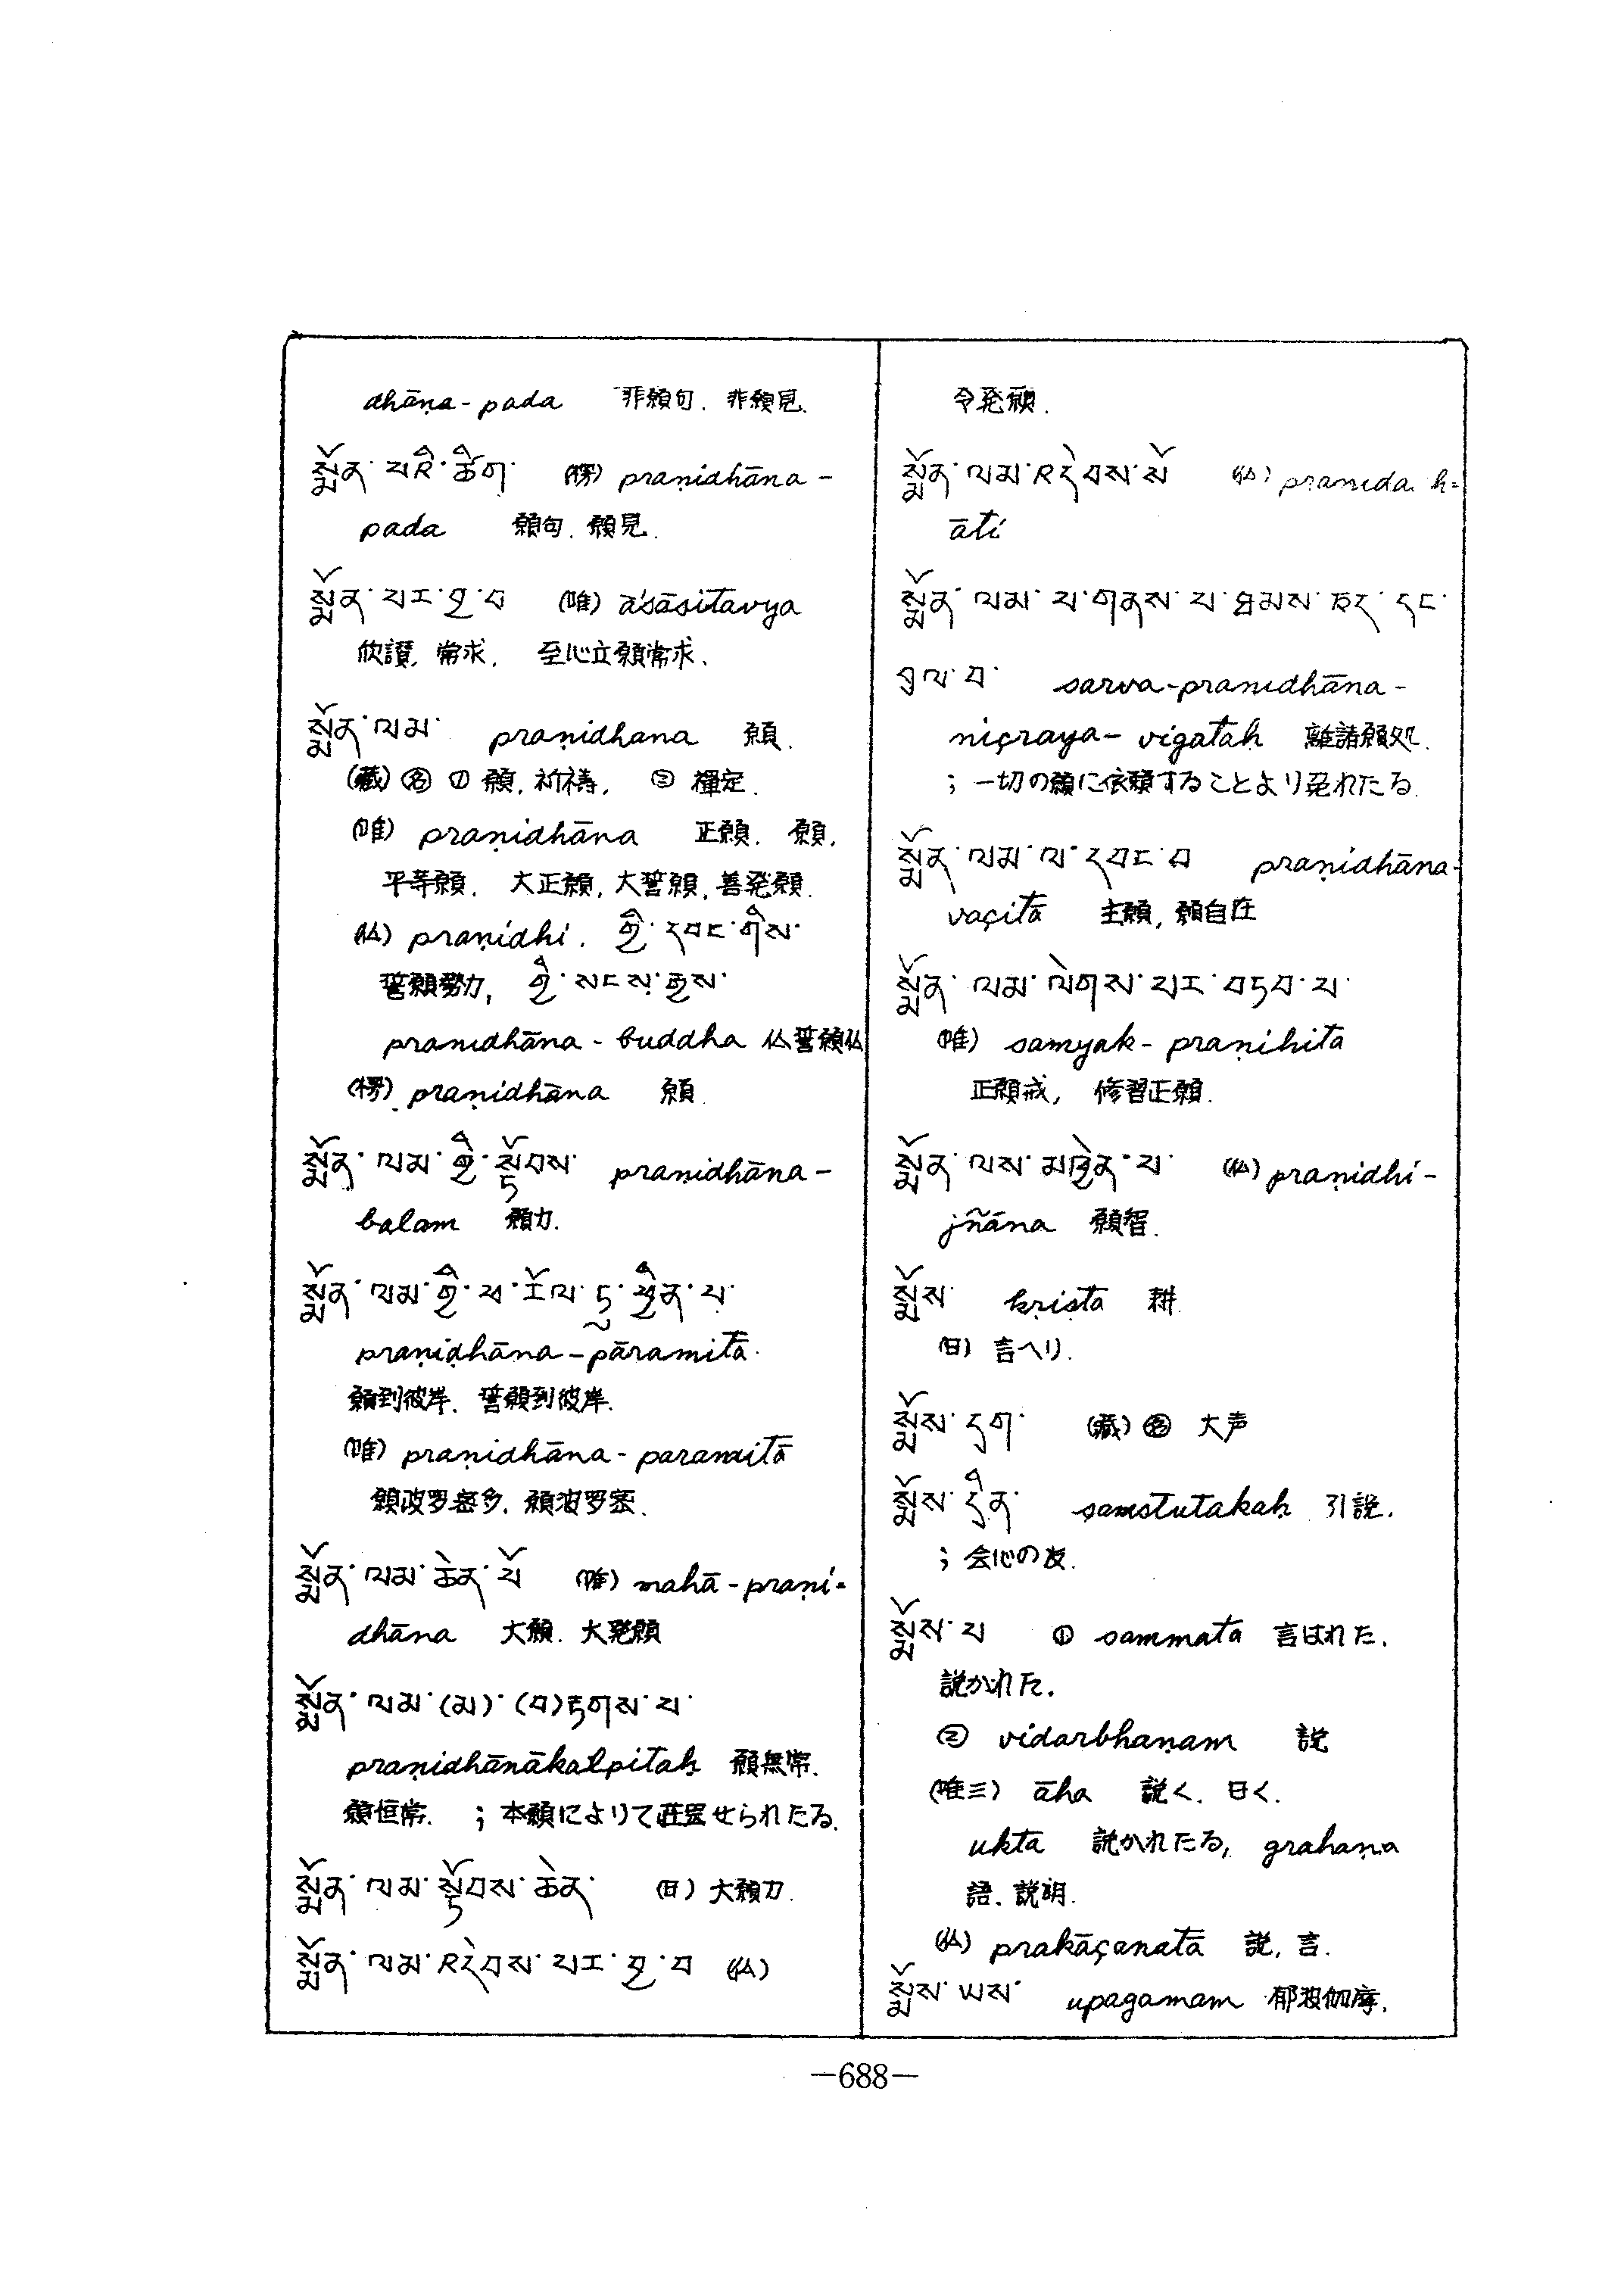 dhāṇa-pada 非願句. 非願見.
སྨོན་པའི་ཚིག་ (楞) praṇidhāna-
pada 願句. 願見.
སྨོན་པར་བྱ་བ (唯) āśāsitavya
欣讃, 常求, 至心立願常求.
སྨོན་ལམ་ praṇidhana 願.
(藏) 名 ① 願, 祈祷, ② 禪定.
(唯) praṇidhāna 正願. 願.
平等願. 大正願, 大誓願, 善発願.
(仏) praṇidhi. ཀྱི་དབང་གིས་
誓願勢力, ཀྱི་སངས་རྒྱས་
pranidhāna-buddha 仏誓願仏
(楞) praṇidhāna 願.
སྨོན་ལམ་ཀྱི་སྟོབས་ pranidhāna-
balam 願力.
སྨོན་ལམ་གྱི་ཕ་རོལ་ཏུ་ཕྱིན་པ་
praṇidhāna-pāramitā.
願到彼岸. 誓願到彼岸.
(唯) praṇidhāna-paramitā
願波罗蜜多. 願波罗蜜.
སྨོན་ལམ་ཆེན་པོ (唯) mahā-praṇi-
dhāna 大願. 大発願
སྨོན་ལམ་(མ)་(བ)རྟགས་པ་
praṇidhānākalpitaḥ 願無常.
願恒常. ; 本願によりて荘厳せられたる.
སྨོན་ལམ་སྟོབས་ཆེན་ (日) 大願力.
སྨོན་ལམ་འདེབས་པར་བྱ་བ (仏)
令発願.
སྨོན་ལམ་འདེབས་སོ (仏) praṇida h-
āti
སྨོན་ལམ་ལ་གནས་པ་ཐམས་ཅད་དང་
བྲལ་བ་ sarva-pranidhāna-
niçraya-vigataḥ 離諸願処.
; 一切の願に依頼することより免れたる.
སྨོན་ལམ་ལ་དབང་བ praṇidhāna-
vaçitā 主願, 願自在
སྨོན་ལམ་ལེགས་པར་བཏབ་པ་
(唯) samyak-praṇihita
正願戒, 修習正願.
སྨོན་ལས་མཁྱེན་པ་ (仏) praṇidhi-
jñāna 願智.
སྨོས་ kṛiṣṭa 耕
(日) 言へり.
སྨོས་དག་ (藏) 名 大声
སྨོས་དྲིན་ saṃstutakaḥ 引説.
; 会心の友.
སྨོས་པ ① sammata 言はれた.
説かれた.
② vidarbhaṇam 説
(唯三) āha 説く. 曰く.
ukta 説かれたる, grahaṇa
語. 説明.
(仏) prakāçanatā 説, 言.
སྨོས་ཡས་ upagamam 郁波伽摩.
—688—